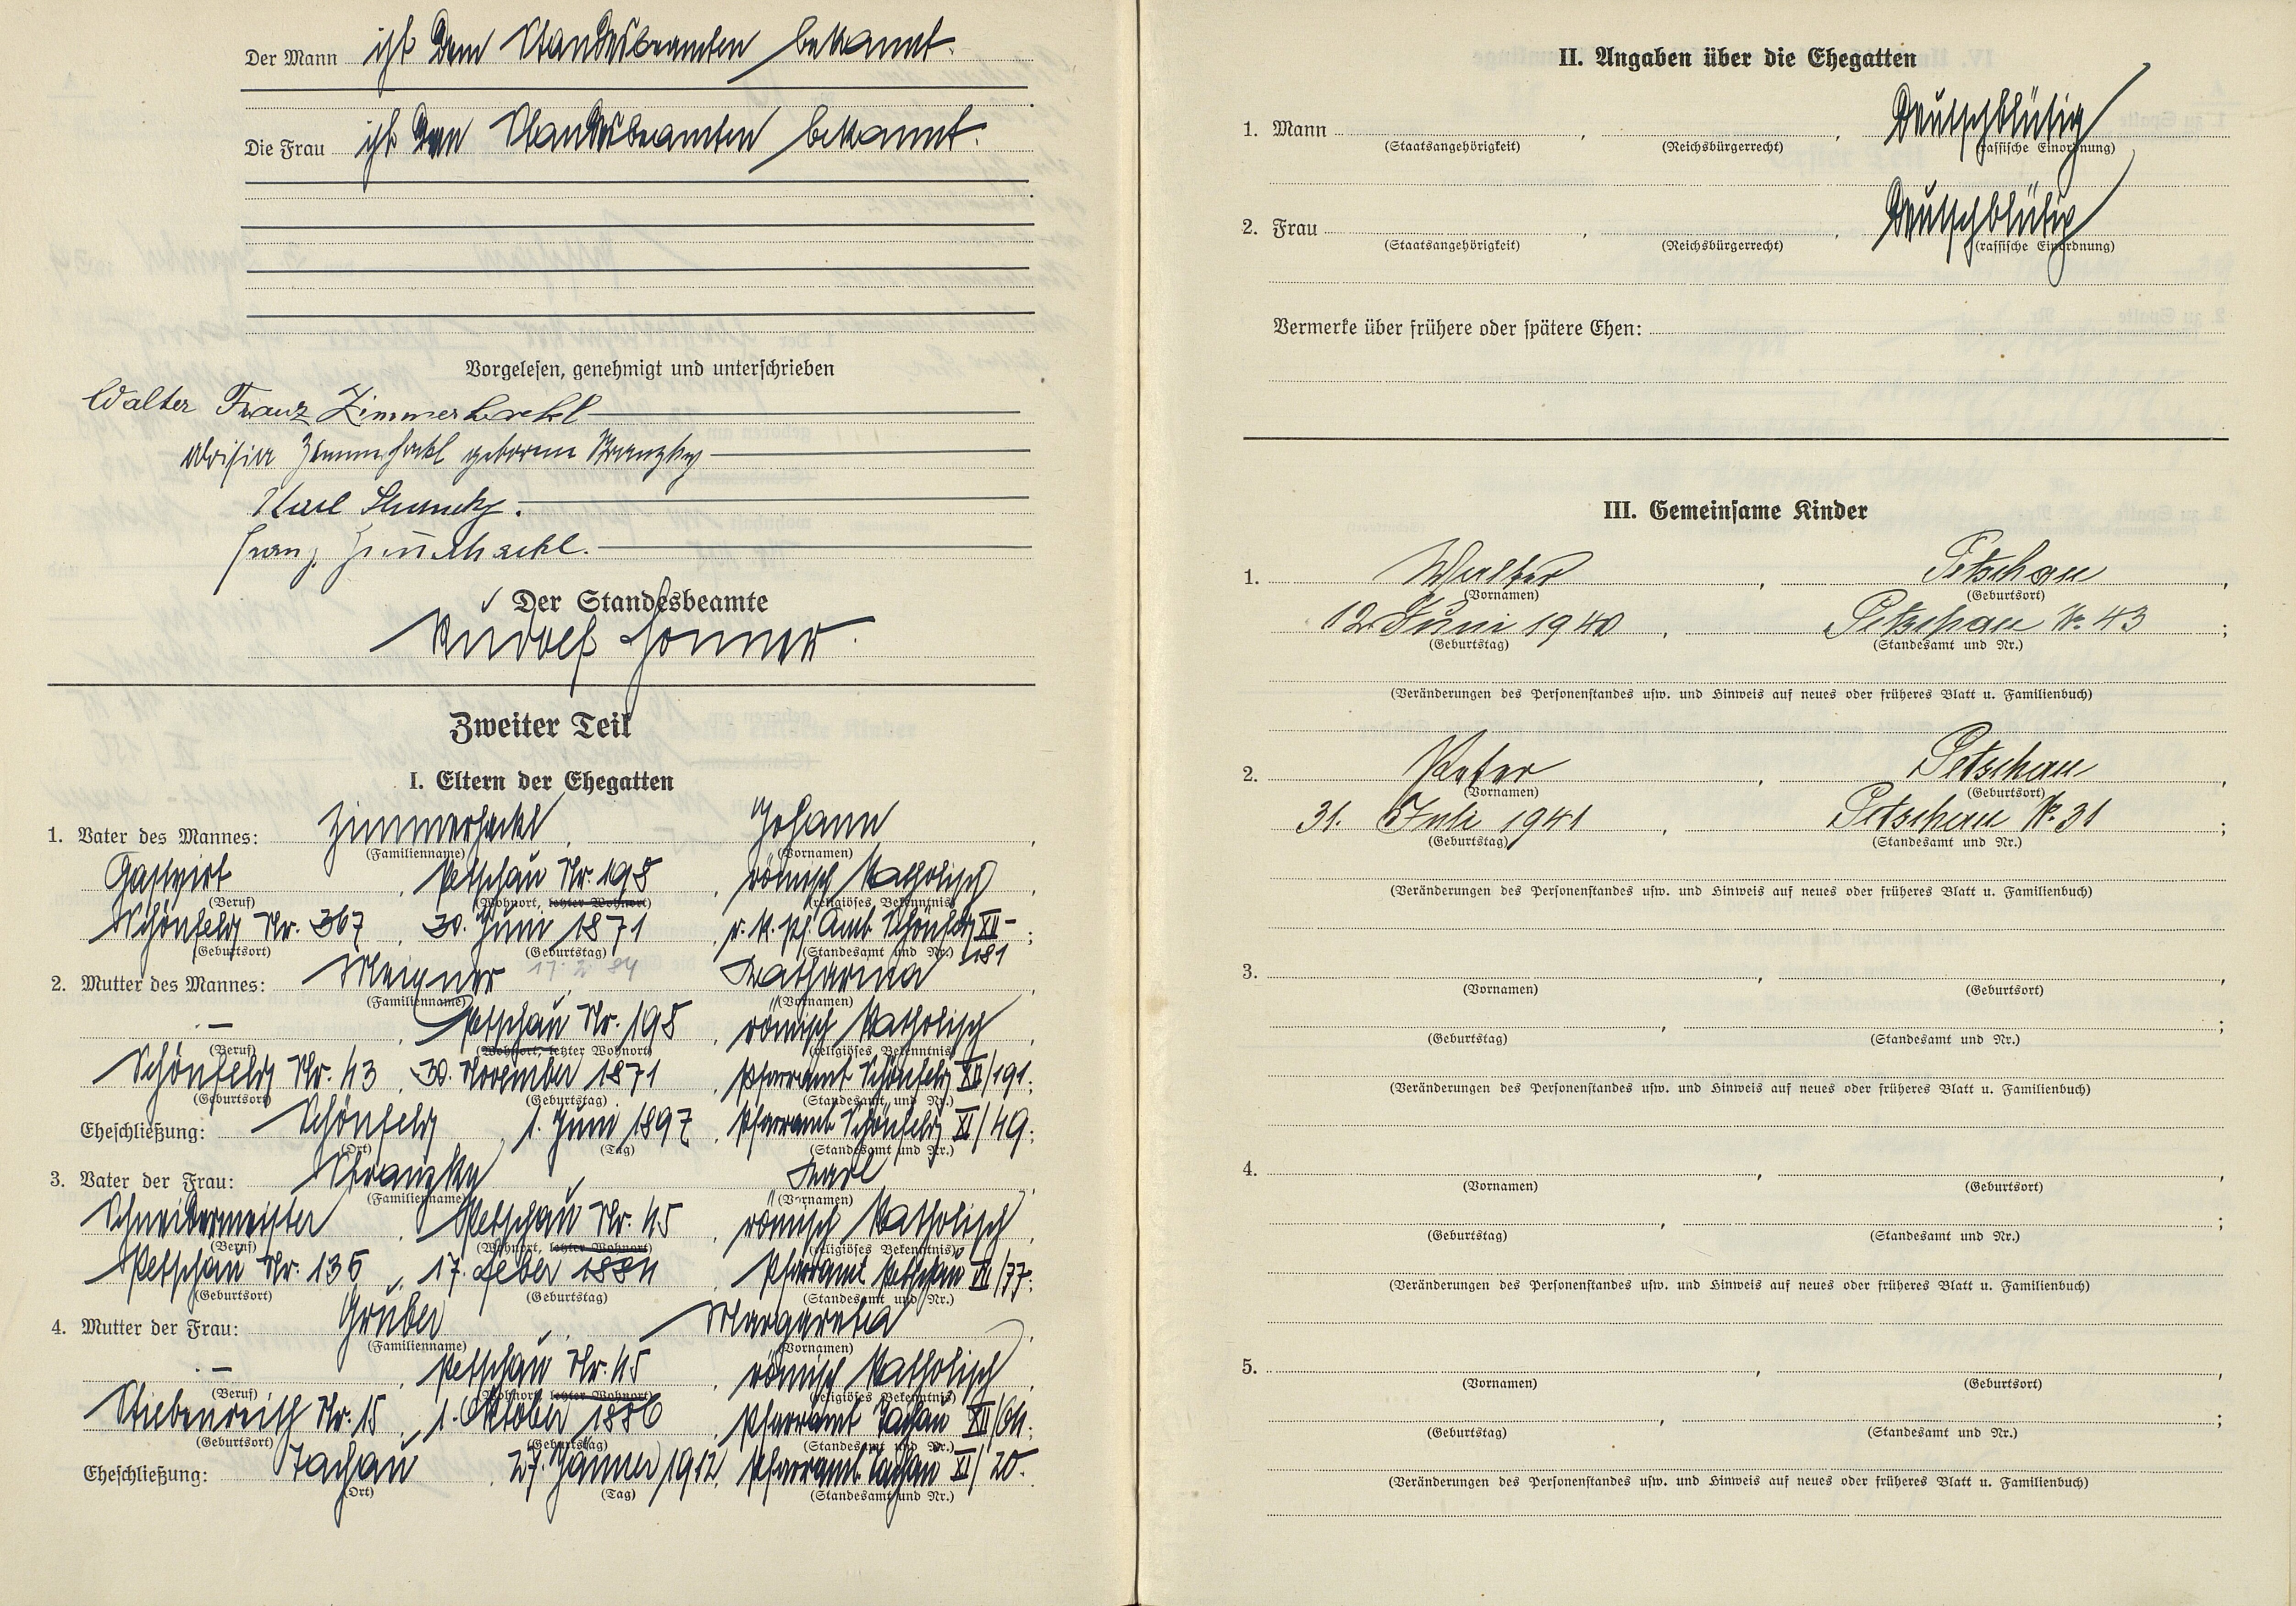 Der Mann ist dem Standesbeamten bekannt.
Die Frau ist dem Standesbeamten bekannt.
Vorgelesen, genehmigt und unterschrieben
Walter Franz Zimmerhackl
Aloisia Zimmerhackl geborene Stranzky
Karl Stranzky.
Franz Zimmerhackl.
Der Standesbeamte
Rudolf
Zweiter Teil
I. Eltern der Ehegatten
1. Vater des Mannes: Zimmerhackl, Johann,
(Familienname) (Vornamen)
Gastwirt, Petschau Nr. 198, römisch katholisch,
(Beruf) (Wohnort, letzter Wohnort) (religiöses Bekenntnis)
Schönfeld Nr. 367, 30. Juni 1871, r. k. Pf. Amt Schönfeld XII-181;
(Geburtsort) (Geburtstag) (Standesamt und Nr.)
17. 2. 84
2. Mutter des Mannes: Meixner, Katharina,
(Familienname) (Vornamen)
. — , Petschau Nr. 198, römisch katholisch,
(Beruf) (Wohnort, letzter Wohnort) (religiöses Bekenntnis)
Schönfeld Nr. 43, 30. November 1871, Pfarramt Schönfeld XII/191;
(Geburtsort) (Geburtstag) (Standesamt und Nr.)
Eheschließung: Schönfeld, 1. Juni 1897, Pfarramt Schönfeld XI/49;
(Ort) (Tag) (Standesamt und Nr.)
3. Vater der Frau: Stranzky, Karl,
(Familienname) (Vornamen)
Schneidermeister, Petschau Nr. 45, römisch katholisch,
(Beruf) (Wohnort, letzter Wohnort) (religiöses Bekenntnis)
Petschau Nr. 136, 17. Feber 1884, Pfarramt Petschau VII/77;
(Geburtsort) (Geburtstag) (Standesamt und Nr.)
4. Mutter der Frau: Gruber, Margareta,
(Familienname) (Vornamen)
. — , Petschau Nr. 45, römisch katholisch,
(Beruf) (Wohnort, letzter Wohnort) (religiöses Bekenntnis)
Stiebenreith Nr. 15, 1. Oktober 1886, Pfarramt Tachau XII/64;
(Geburtsort) (Geburtstag) (Standesamt und Nr.)
Eheschließung: Tachau, 27. Jänner 1912, Pfarramt Tachau XI/20.
(Ort) (Tag) (Standesamt und Nr.)
II. Angaben über die Ehegatten
1. Mann , , Deutschblütig
(Staatsangehörigkeit) (Reichsbürgerrecht) (rassische Einordnung)
2. Frau , , Deutschblütig
(Staatsangehörigkeit) (Reichsbürgerrecht) (rassische Einordnung)
Vermerke über frühere oder spätere Ehen:
III. Gemeinsame Kinder
1. Walter, Petschau,
(Vornamen) (Geburtsort)
12. Juni 1940, Petschau Nr. 43;
(Geburtstag) (Standesamt und Nr.)
(Veränderungen des Personenstandes usw. und Hinweis auf neues oder früheres Blatt u. Familienbuch)
2. Peter, Petschau,
(Vornamen) (Geburtsort)
31. Juli 1941, Petschau Nr. 31;
(Geburtstag) (Standesamt und Nr.)
(Veränderungen des Personenstandes usw. und Hinweis auf neues oder früheres Blatt u. Familienbuch)
3. , ,
(Vornamen) (Geburtsort)
, ;
(Geburtstag) (Standesamt und Nr.)
(Veränderungen des Personenstandes usw. und Hinweis auf neues oder früheres Blatt u. Familienbuch)
4. , ,
(Vornamen) (Geburtsort)
, ;
(Geburtstag) (Standesamt und Nr.)
(Veränderungen des Personenstandes usw. und Hinweis auf neues oder früheres Blatt u. Familienbuch)
5. , ,
(Vornamen) (Geburtsort)
, ;
(Geburtstag) (Standesamt und Nr.)
(Veränderungen des Personenstandes usw. und Hinweis auf neues oder früheres Blatt u. Familienbuch)